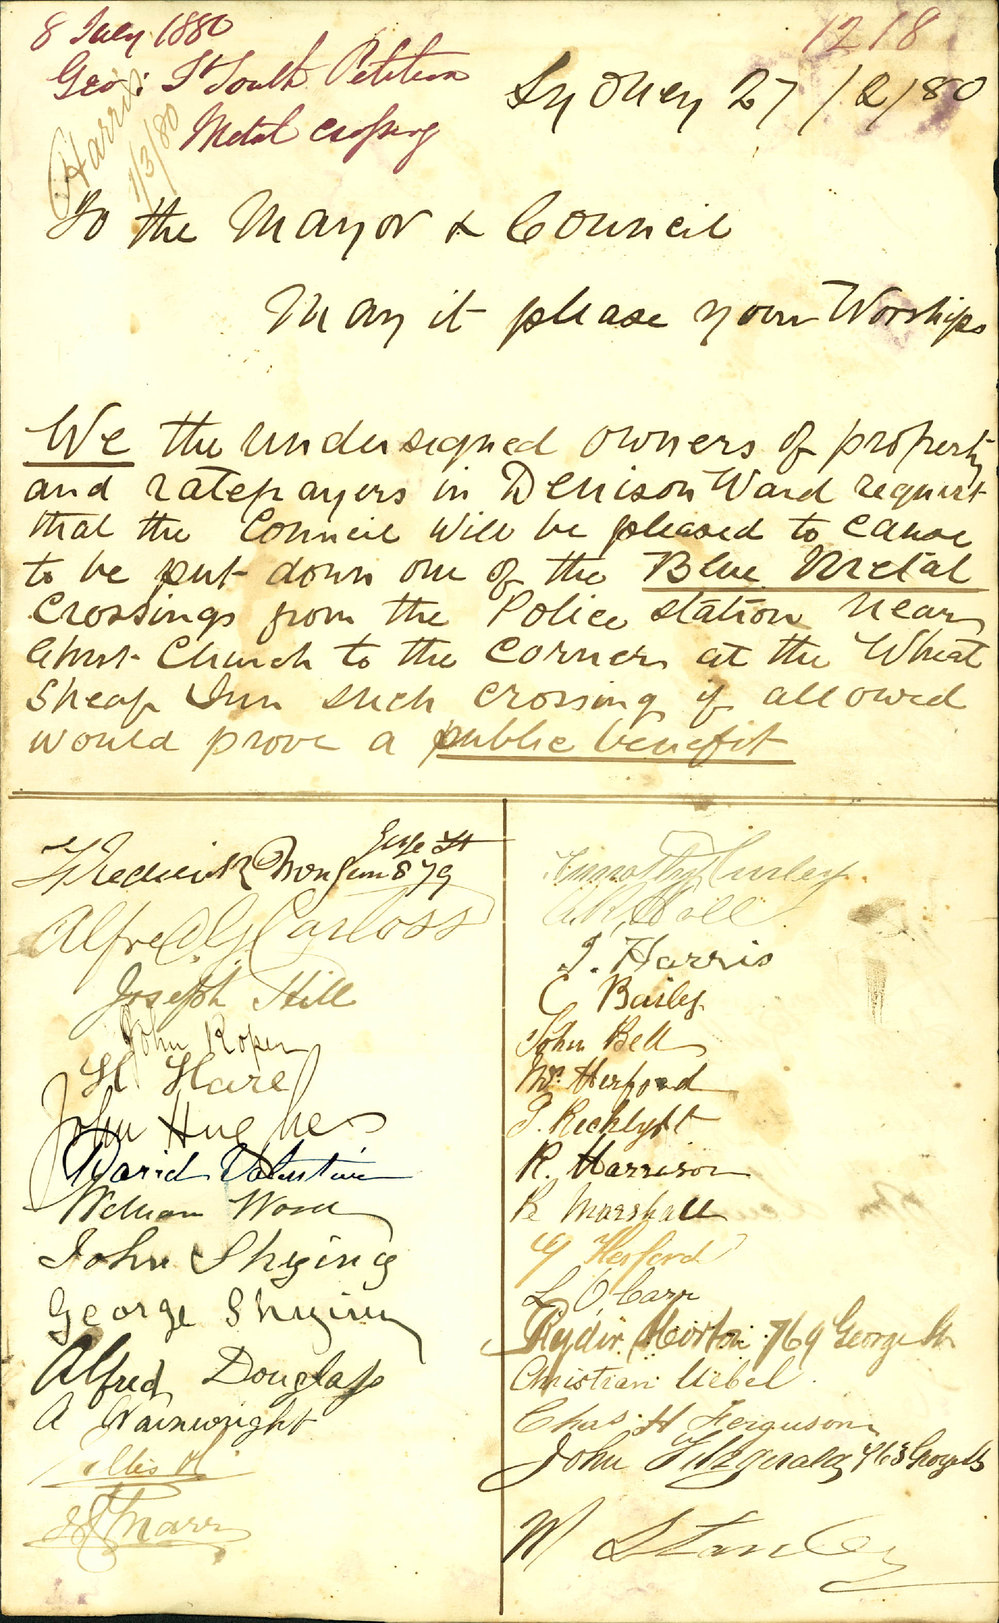 8 July 1880
1218
Geo: St South Petition
Metal Crossing
Harris
1/3/80
Sydney 27/2/80
To the Mayor & Council
May it please your Worships
We the undersigned owners of property
and ratepayers in Denison Ward request
that the Council will be pleased to cause
to be put down one of the Blue Metal
Crossings from the Police station near
Christ Church to the corner at the Wheat
Sheaf Inn such crossing if allowed
would prove a public benefit
Frederick 879
Alfred G Carloss
Joseph Hill
John Roper
H Hare
John Hughes
David Valentine
William Wood
John Shying
George Shying
Alfred Douglass
A Wainwright
Marr
Timothy Curley
Hill
J. Harris
C Bailey
John Bell
Mr. Herford
R. Harrison
R Marshall
Herford
L O Carr
Rydir Horton 769 George St
Christian Uebel
Chas. H Ferguson
John Fitzgerald 763 George St
W Stanley